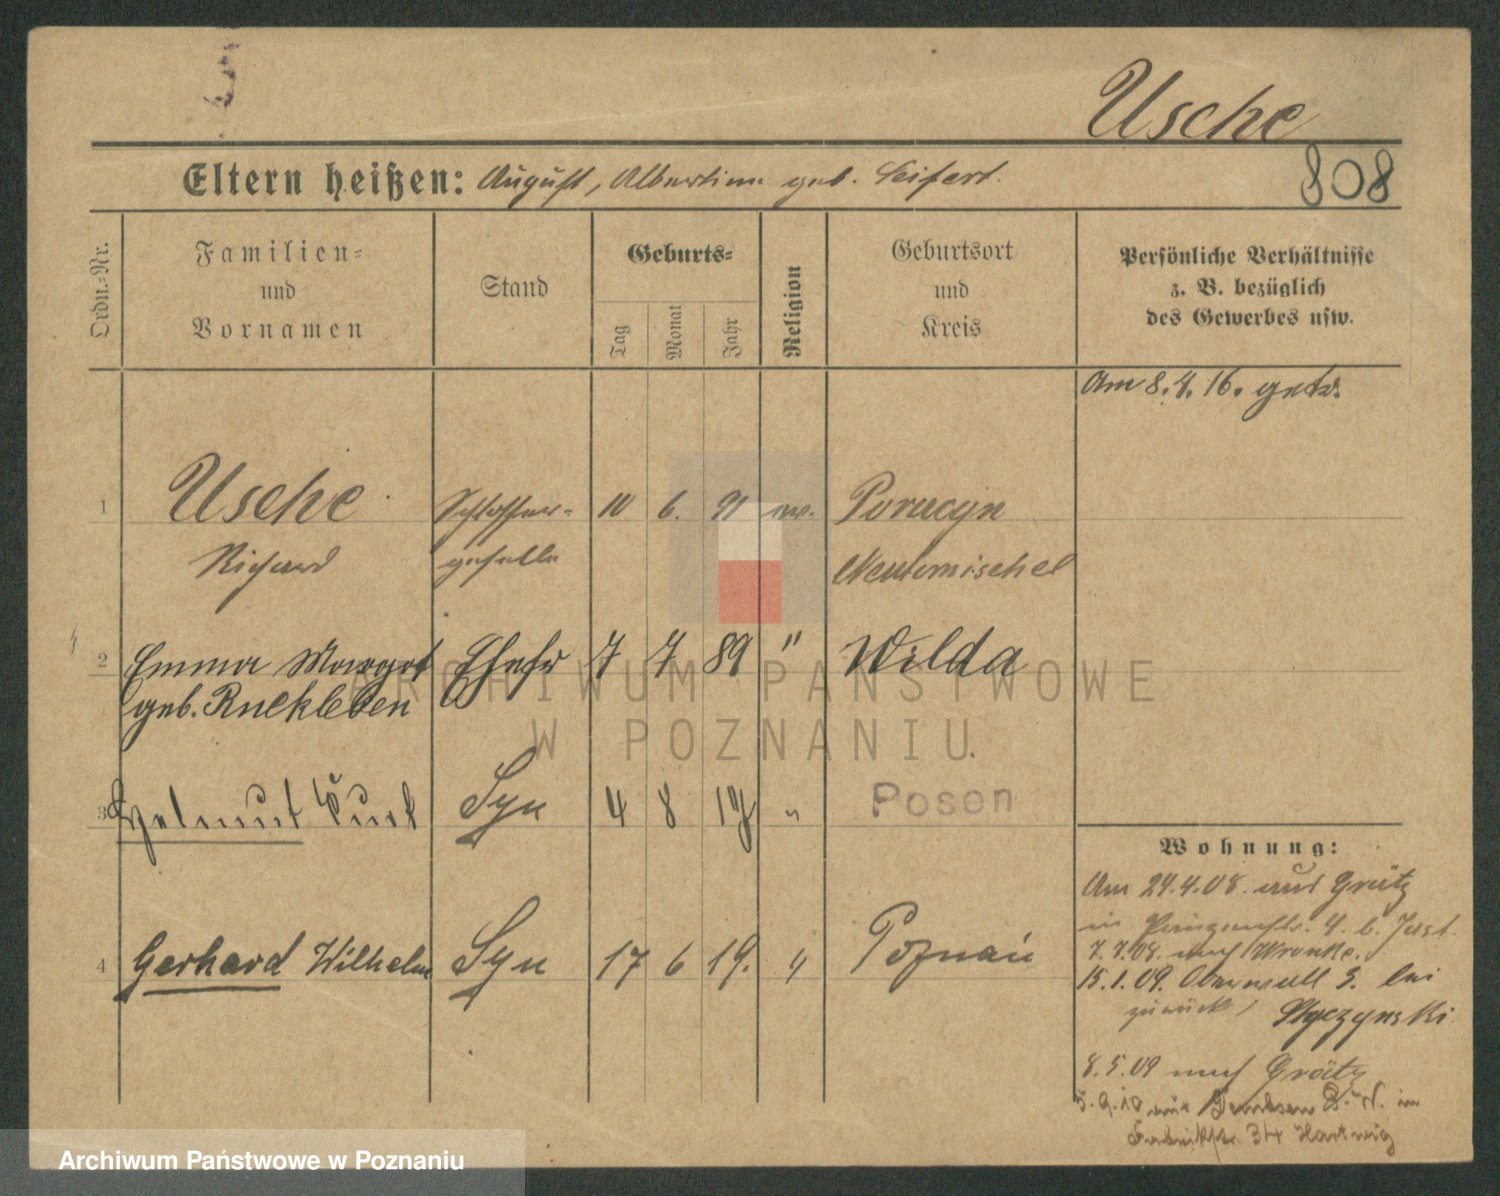 Usche
Eltern heißen: August, Albertine geb. Seifert.
808
Ordn.-Nr.
Familien-
und
Vornamen
Stand
Geburts-
Tag
Monat
Jahr
Religion
Geburtsort
und
Kreis
Persönliche Verhältnisse
z. B. bezüglich
des Gewerbes usw.
Am 8.4.16. getr.
1 Usche Schlosser- 10 6. 91 ev. Porucyn
Richard geselle Neutomischel
2 Emma Margot Ehefr 7 7 89 " Wilda
geb. Ruckleben
3 Helmut Kurt Syn 4 8 17 " Posen
4 Gerhard Wilhelm Syn 17 6 19. " Poznań
Wohnung:
Am 24.4.08. aus Grätz
in 4. b. Just.
7.7.08. nach Wronke.
15.1.09. Oberwall 3. bei
zurück, Styczynski
8.5.09 nach Grätz
5.9.10 aus in
Fabrikstr. 34 Hartwig
ARCHIWUM PAŃSTWOWE
W POZNANIU
Archiwum Państwowe w Poznaniu